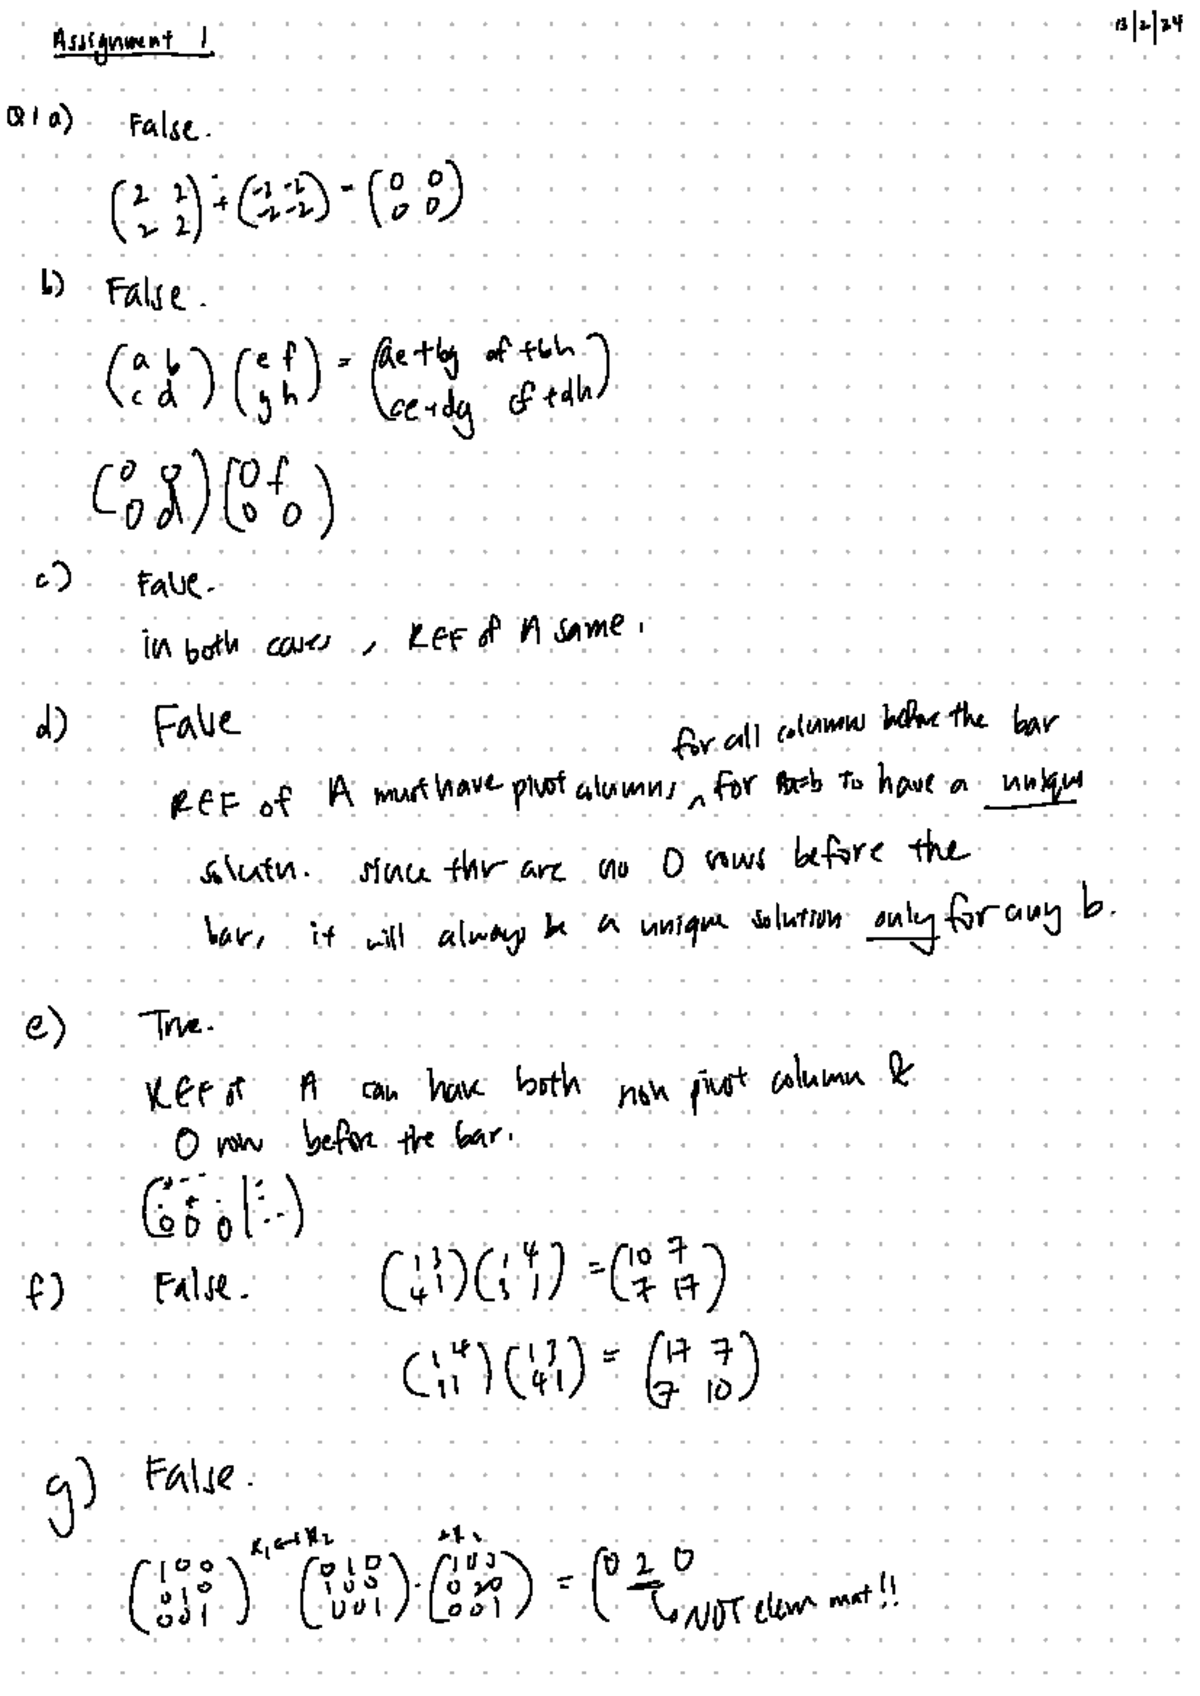 Assignment 1
13/2/24
Q1 a) False.
(2 2 / 2 2) + (-2 -2 / -2 -2) = (0 0 / 0 0)
b) False.
(a b / c d) (e f / g h) = (ae+bg af+bh / ce+dg cf+dh)
(0 0 / 0 d) (0 f / 0 0)
c) False.
in both cases, REF of A same.
d) False
for all columns before the bar
REF of A must have pivot columns ^ for Ax=b to have a unique
solutn. since thr are no 0 rows before the
bar, it will always be a unique solution only for any b.
e) True.
REF of A can have both non pivot column &
0 row before the bar.
0 0 0
f) False. (1 3 / 4 1) (1 4 / 3 1) = (10 7 / 7 17)
(1 4 / 3 1) (1 3 / 4 1) = (17 7 / 7 10)
g) False.
R1 ↔ R2
(1 0 0 / 0 1 0 / 0 0 1) (0 1 0 / 1 0 0 / 0 0 1) · (1 0 0 / 0 2 0 / 0 0 1) = (0 2 0
NOT elem mat!!